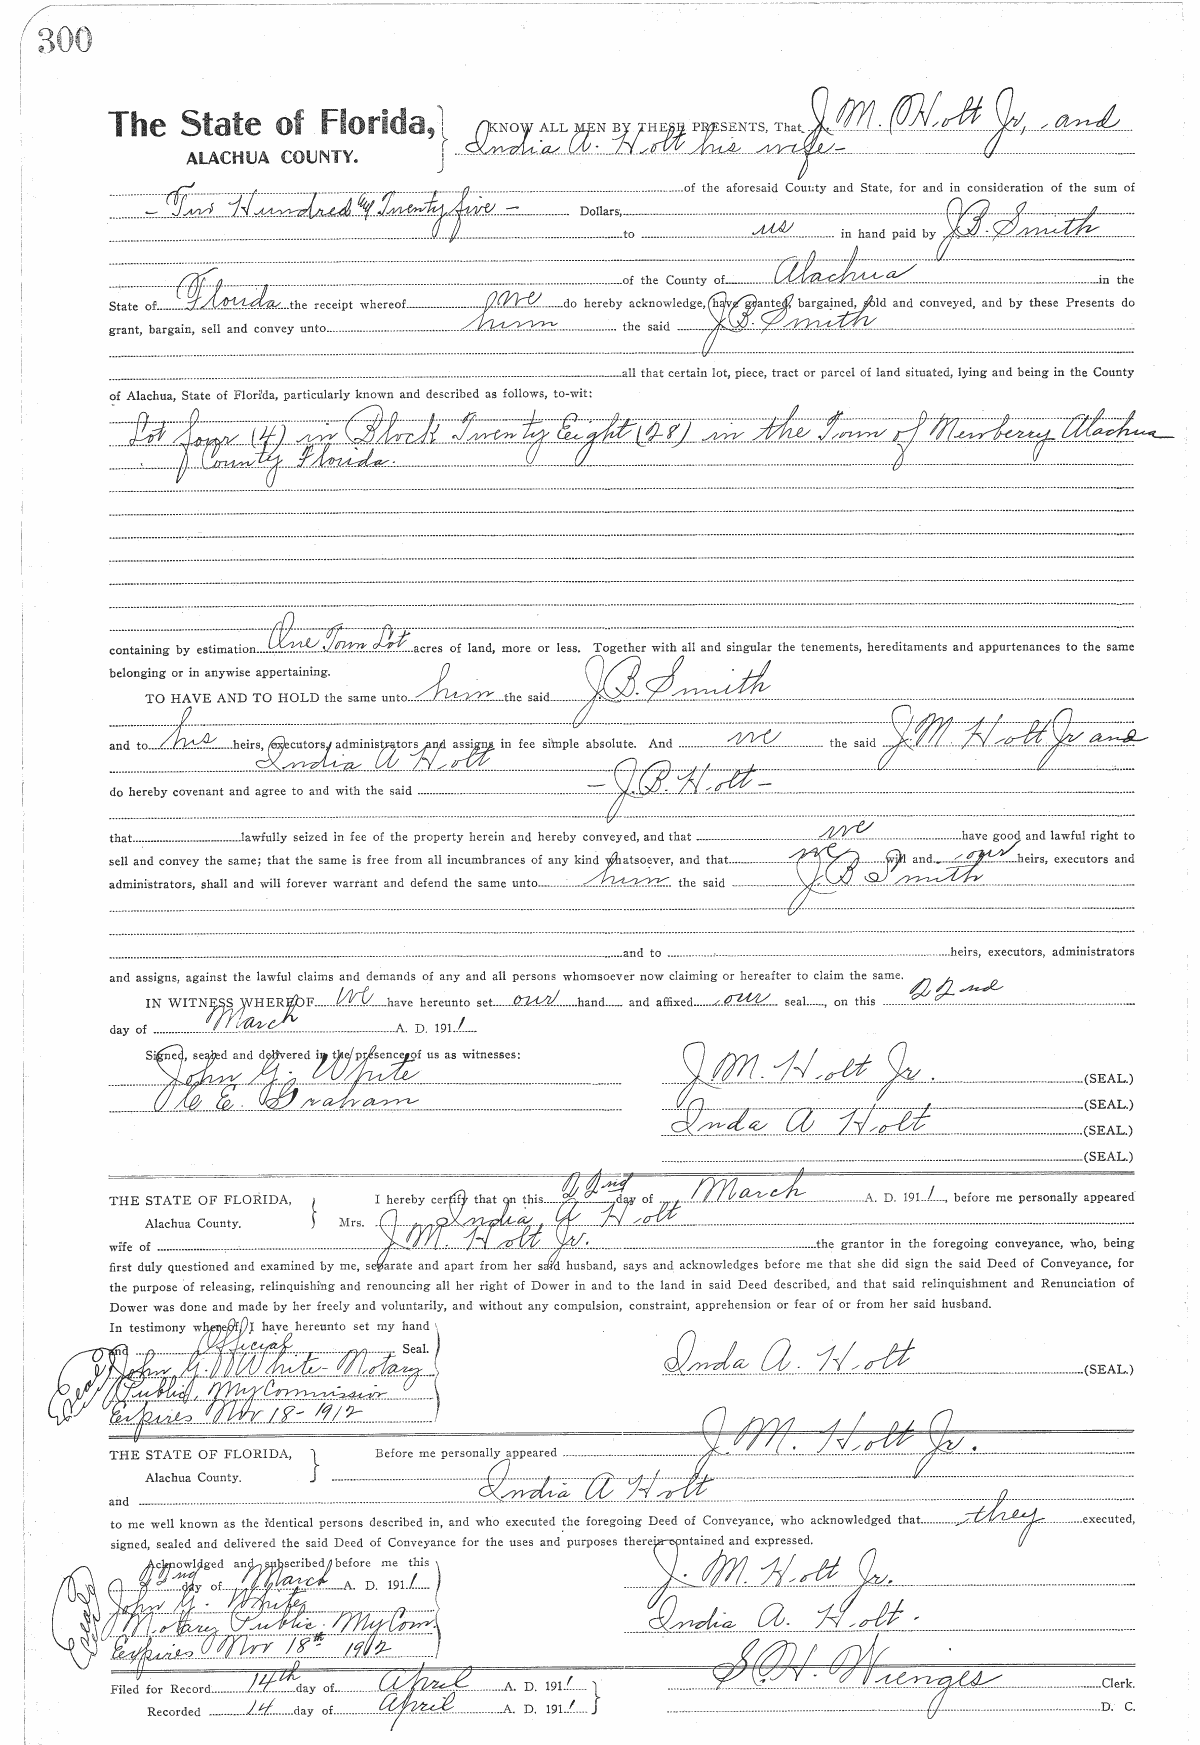 300
The State of Florida,
ALACHUA COUNTY.
KNOW ALL MEN BY THESE PRESENTS, That J. M. Holt Jr, and
India A. Holt his wife-
of the aforesaid County and State, for and in consideration of the sum of
- Two Hundred & Twenty five - Dollars,
to us in hand paid by J.B. Smith
of the County of Alachua in the
State of Florida the receipt whereof we do hereby acknowledge, have granted, bargained, sold and conveyed, and by these Presents do
grant, bargain, sell and convey unto him the said J.B. Smith
all that certain lot, piece, tract or parcel of land situated, lying and being in the County
of Alachua, State of Florida, particularly known and described as follows, to-wit:
Lot four (4) in Block Twenty Eight (28) in the Town of Newberry Alachua
County Florida.
containing by estimation One Town Lot acres of land, more or less. Together with all and singular the tenements, hereditaments and appurtenances to the same
belonging or in anywise appertaining.
TO HAVE AND TO HOLD the same unto him the said J.B. Smith
and to his heirs, executors, administrators and assigns in fee simple absolute. And we the said J.M. Holt Jr and
India A Holt
do hereby covenant and agree to and with the said - J.B. Holt -
that lawfully seized in fee of the property herein and hereby conveyed, and that we have good and lawful right to
sell and convey the same; that the same is free from all incumbrances of any kind whatsoever, and that we will and our heirs, executors and
administrators, shall and will forever warrant and defend the same unto him the said J B Smith
and to heirs, executors, administrators
and assigns, against the lawful claims and demands of any and all persons whomsoever now claiming or hereafter to claim the same.
IN WITNESS WHEREOF We have hereunto set our hand and affixed our seal, on this 22nd
day of March A. D. 1911
Signed, sealed and delivered in the presence of us as witnesses:
John G. White J M. Holt Jr. (SEAL.)
C E. Graham (SEAL.)
Inda A Holt (SEAL.)
(SEAL.)
THE STATE OF FLORIDA, I hereby certify that on this 22nd day of March A. D. 1911, before me personally appeared
Alachua County. Mrs. India A Holt
wife of J M. Holt Jr. the grantor in the foregoing conveyance, who, being
first duly questioned and examined by me, separate and apart from her said husband, says and acknowledges before me that she did sign the said Deed of Conveyance, for
the purpose of releasing, relinquishing and renouncing all her right of Dower in and to the land in said Deed described, and that said relinquishment and Renunciation of
Dower was done and made by her freely and voluntarily, and without any compulsion, constraint, apprehension or fear of or from her said husband.
In testimony whereof, I have hereunto set my hand
and Official Seal.
(Seal) John G. White- Notary Inda A. Holt (SEAL.)
Public, My Commission
Expires Nov 18-1912
THE STATE OF FLORIDA, Before me personally appeared J. M. Holt Jr.
Alachua County.
and India A Holt
to me well known as the identical persons described in, and who executed the foregoing Deed of Conveyance, who acknowledged that they executed,
signed, sealed and delivered the said Deed of Conveyance for the uses and purposes therein contained and expressed.
Acknowldged and subscribed before me this
22nd day of March A. D. 1911 J. M. Holt Jr.
(Seal) John G. White India A. Holt.
Notary Public. My Com.
Expires Nov 18th 1912
Filed for Record 14th day of April A. D. 1911 S.H. Wienges Clerk.
Recorded 14 day of April A. D. 1911 D. C.